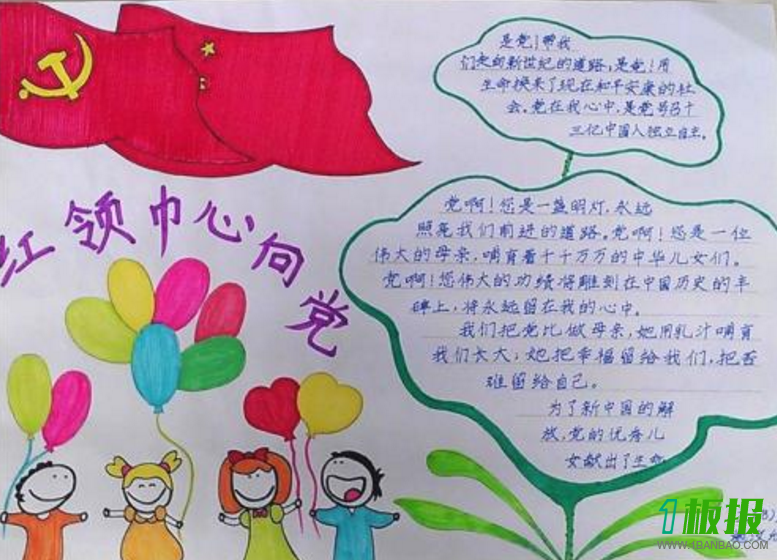 红领巾心向党
是党!带我
们走向新世纪的道路,是党!用
生命换来了现在和平安康的社
会。党在我心中,是党号召十
三亿中国人独立自主。
党啊!您是一盏明灯,永远
照亮我们前进的道路。党啊!您是一位
伟大的母亲,哺育着千千万万的中华儿女们。
党啊!您伟大的功绩将雕刻在中国历史的丰
碑上,将永远留在我的心中。
我们把党比做母亲,她用乳汁哺育
我们长大;她把幸福留给我们,把苦
难留给自己。
为了新中国的解
放,党的优秀儿
女献出了生命
1板报
WWW.1BANBAO.COM